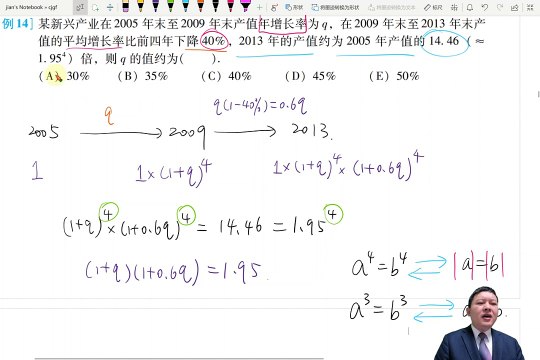 jian's Notebook » cjgf
例 14】某新兴产业在 2005 年末至 2009 年末产值年增长率为 q，在 2009 年末至 2013 年末产
值的平均增长率比前四年下降 40%，2013 年的产值约为 2005 年产值的 14.46（≈
1.95⁴）倍，则 q 的值约为( ).
(A) 30% (B) 35% (C) 40% (D) 45% (E) 50%
q(1-40%)=0.6q
q
2005 → 2009 → 2013.
1 1×(1+q)⁴ 1×(1+q)⁴×(1+0.6q)⁴
(1+q)⁴×(1+0.6q)⁴ = 14.46 = 1.95⁴
(1+q)(1+0.6q) = 1.95.
a⁴=b⁴ ⇄ |a|=|b|
a³=b³ ⇄